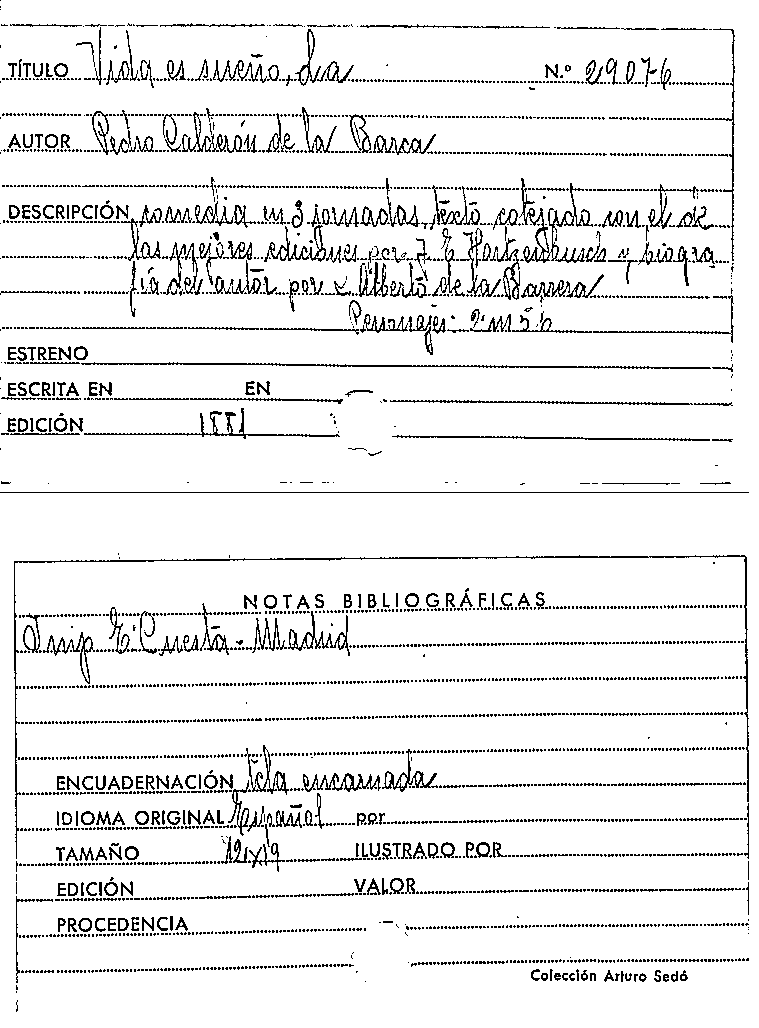 TÍTULO Vida es sueño, La N.º 29076
AUTOR Pedro Calderón de la Barca
DESCRIPCIÓN comedia en 3 jornadas, texto cotejado con el de
las mejores ediciones por J. E. Hartzenbusch y biogra
fía del autor por Alberto de la Barrera
Personajes: 2 m 5 h
ESTRENO
ESCRITA EN EN
EDICIÓN 1881
NOTAS BIBLIOGRÁFICAS
Imp E. Cuesta - Madrid
ENCUADERNACIÓN tela encarnada
IDIOMA ORIGINAL Español por
TAMAÑO 12x19 ILUSTRADO POR
EDICIÓN VALOR
PROCEDENCIA
Colección Arturo Sedó